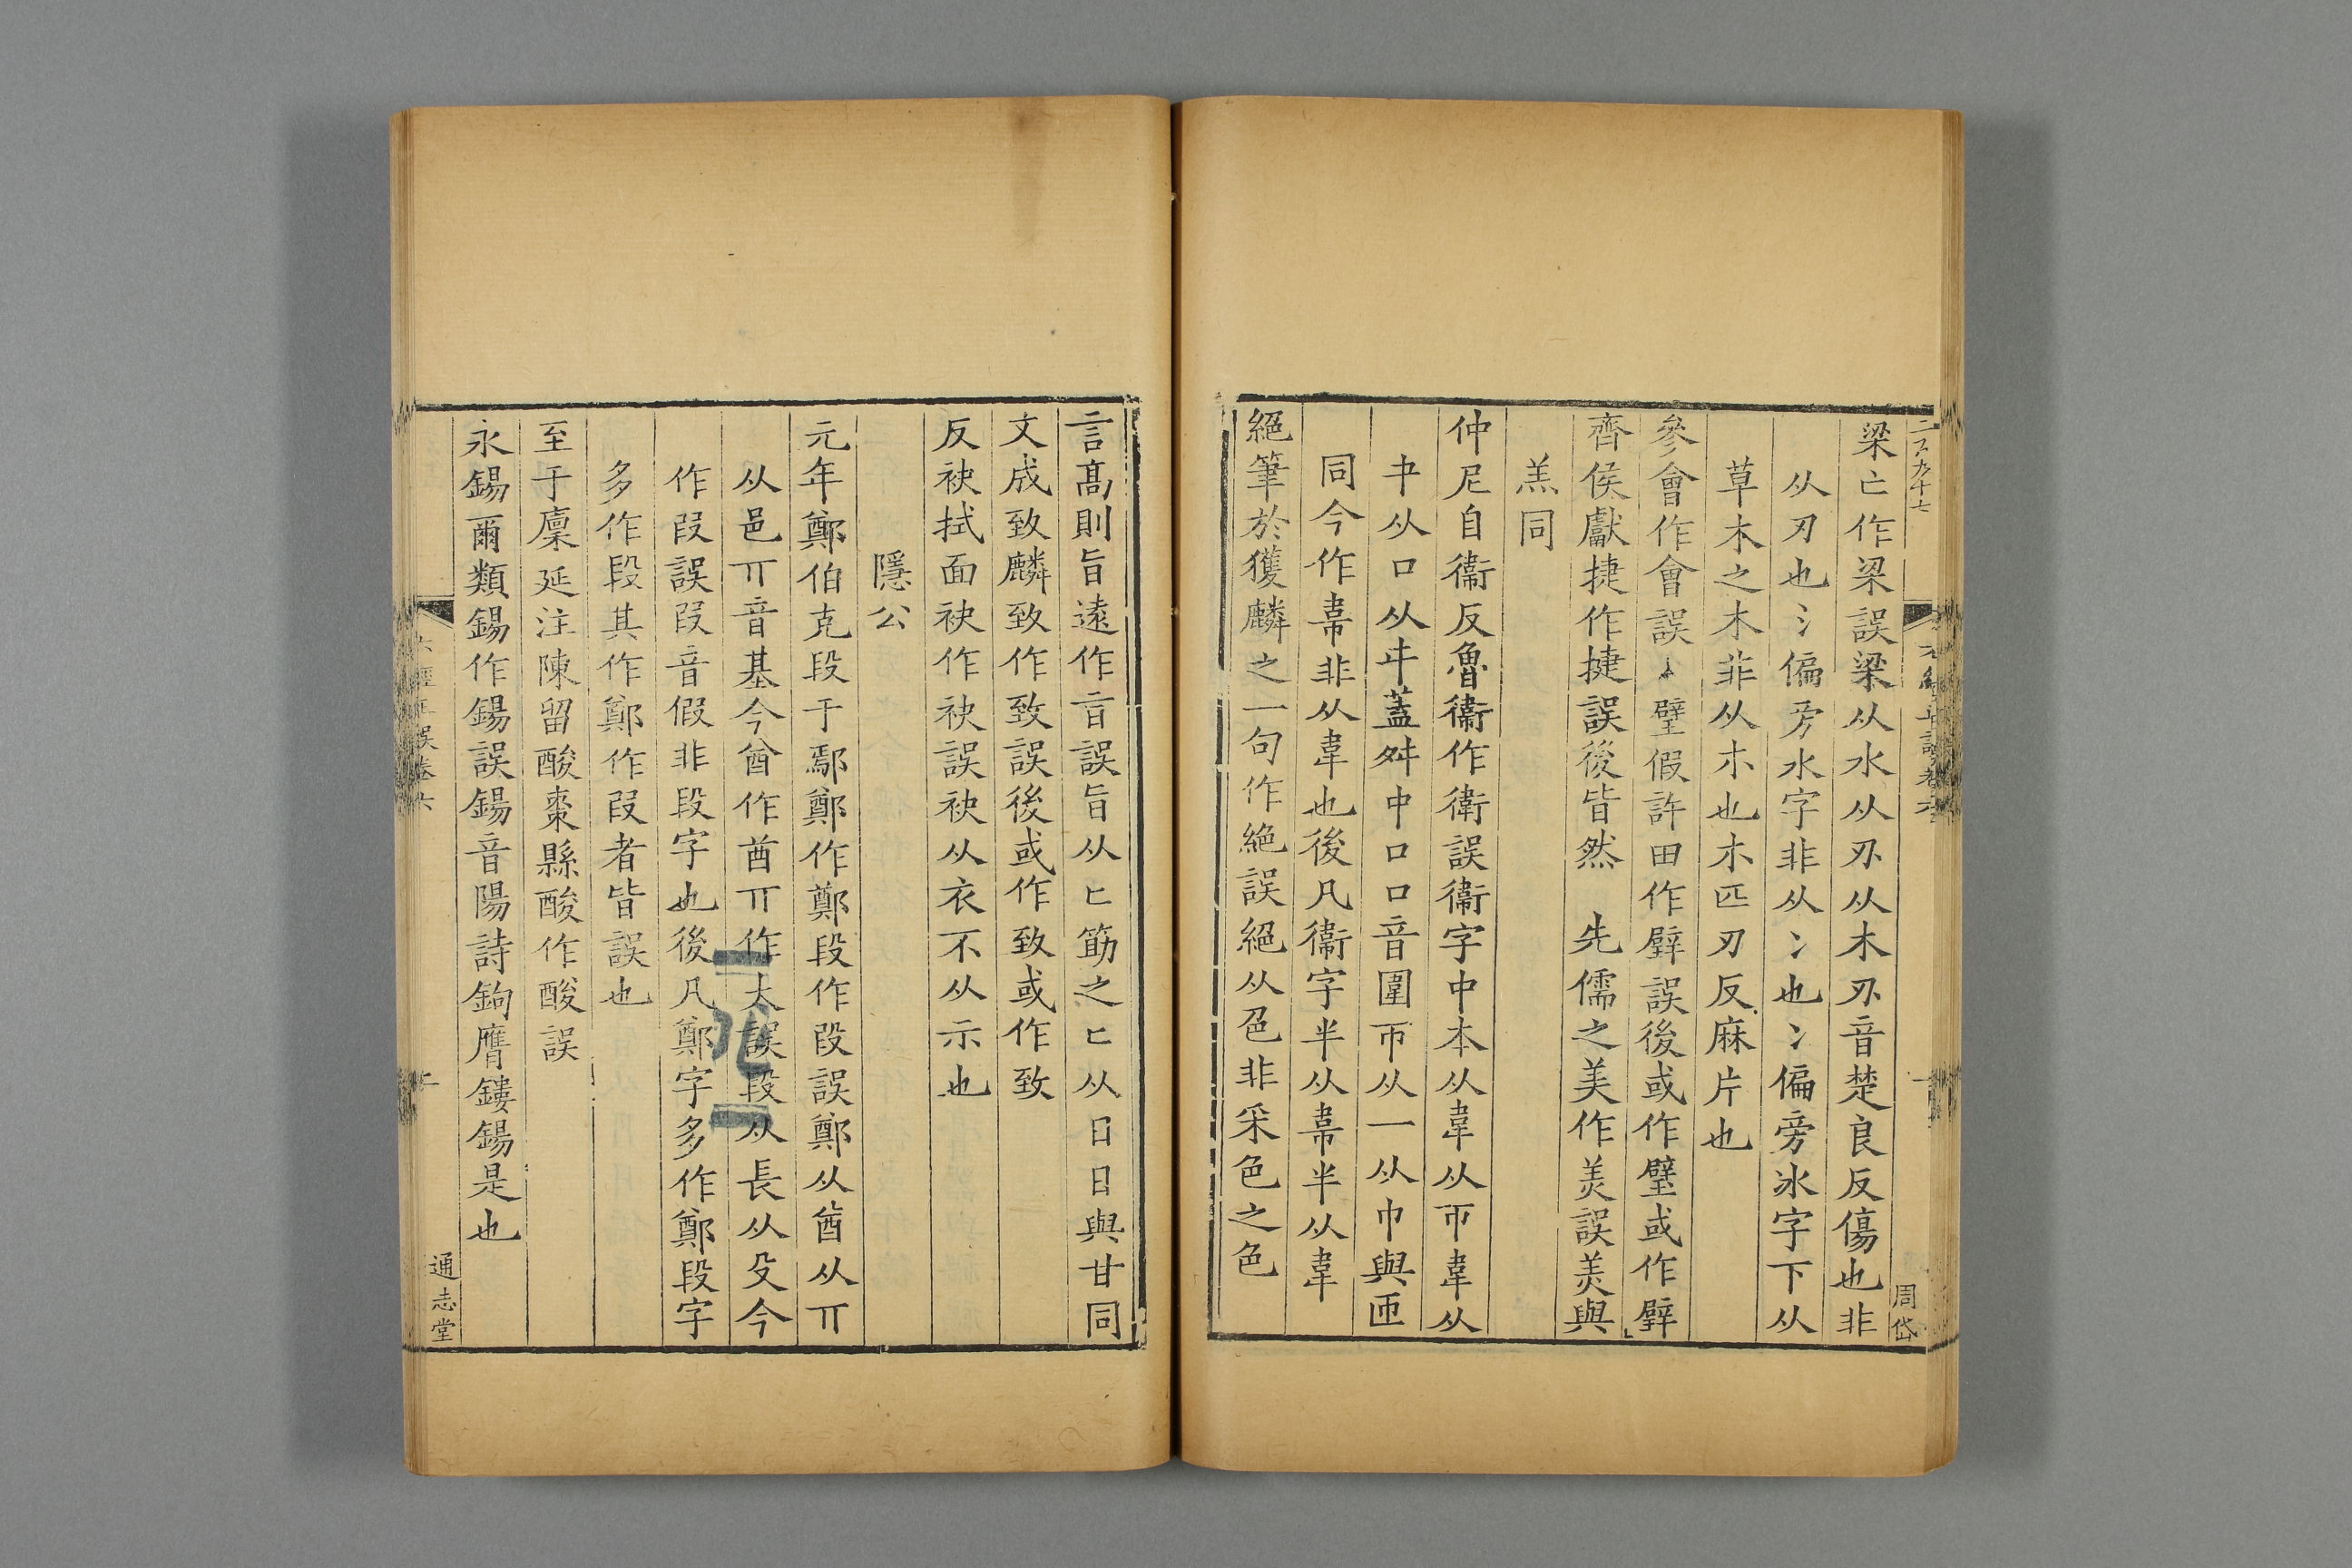 梁亡作梁誤梁从水从刅从木刅音楚良反傷也非
从刃也氵偏旁水字非从冫也冫偏旁冰字下从
草木之木非从朩也朩匹刃反麻片也
參會作會誤 璧假許田作壁誤後或作璧或作壁
齊侯獻捷作捷誤後皆然 先儒之美作羙誤羙與
羔同
仲尼自衞反魯衞作衛誤衞字中本从韋从帀韋从
㐄从口从㐄蓋舛中口口音圍帀从一从巾與匝
同今作帇非从韋也後凡衞字半从帇半从韋
絕筆於獲麟之一句作絶誤絕从刀非采色之色
言高則旨遠作㫖誤旨从匕筯之匕从日日與甘同
文成致麟致作致誤後或作致或作致
反袂拭面袂作袂誤袂从衣不从示也
隱公
元年鄭伯克段于鄢鄭作鄭段作叚誤鄭从酋从丌
从邑丌音基今酋作酉丌作大誤段从長从殳今
作叚誤叚音假非段字也後凡鄭字多作鄭段字
多作段其作鄭作叚者皆誤也
至于廩延注陳留酸棗縣酸作酸誤
永錫爾類錫作鍚誤鍚音陽詩鉤膺鏤鍚是也
通志堂
周岱